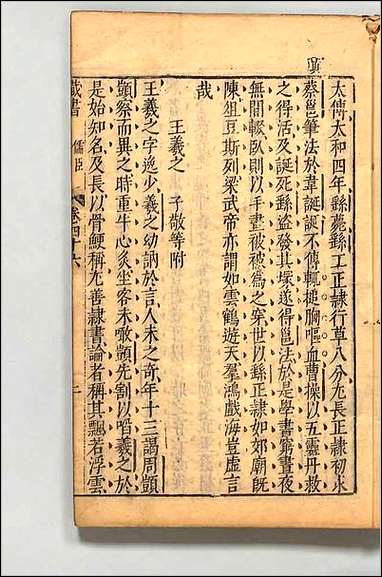 太傅太和四年繇薨繇工正隷行草八分尤長正隷初求
蔡邕筆法於韋誕誕不傳輙搥胸嘔血曹操以五靈丹救
之得活及誕死繇盜發其塚遂得邕法於是學書窮晝夜
無間輟臥則以手畫被被為之穿世以繇正隷如郊廟既
陳俎豆斯列梁武帝亦謂如雲鶴遊天羣鴻戲海豈虛言
哉
王羲之 子敬等附
王羲之字逸少羲之幼訥於言人未之奇年十三謁周顗
顗察而異之時重牛心炙坐客未噉顗先割以啗羲之於
是始知名及長以骨鯁稱尤善隷書論者稱其飄若浮雲
藏書 儒臣 卷四十六 三